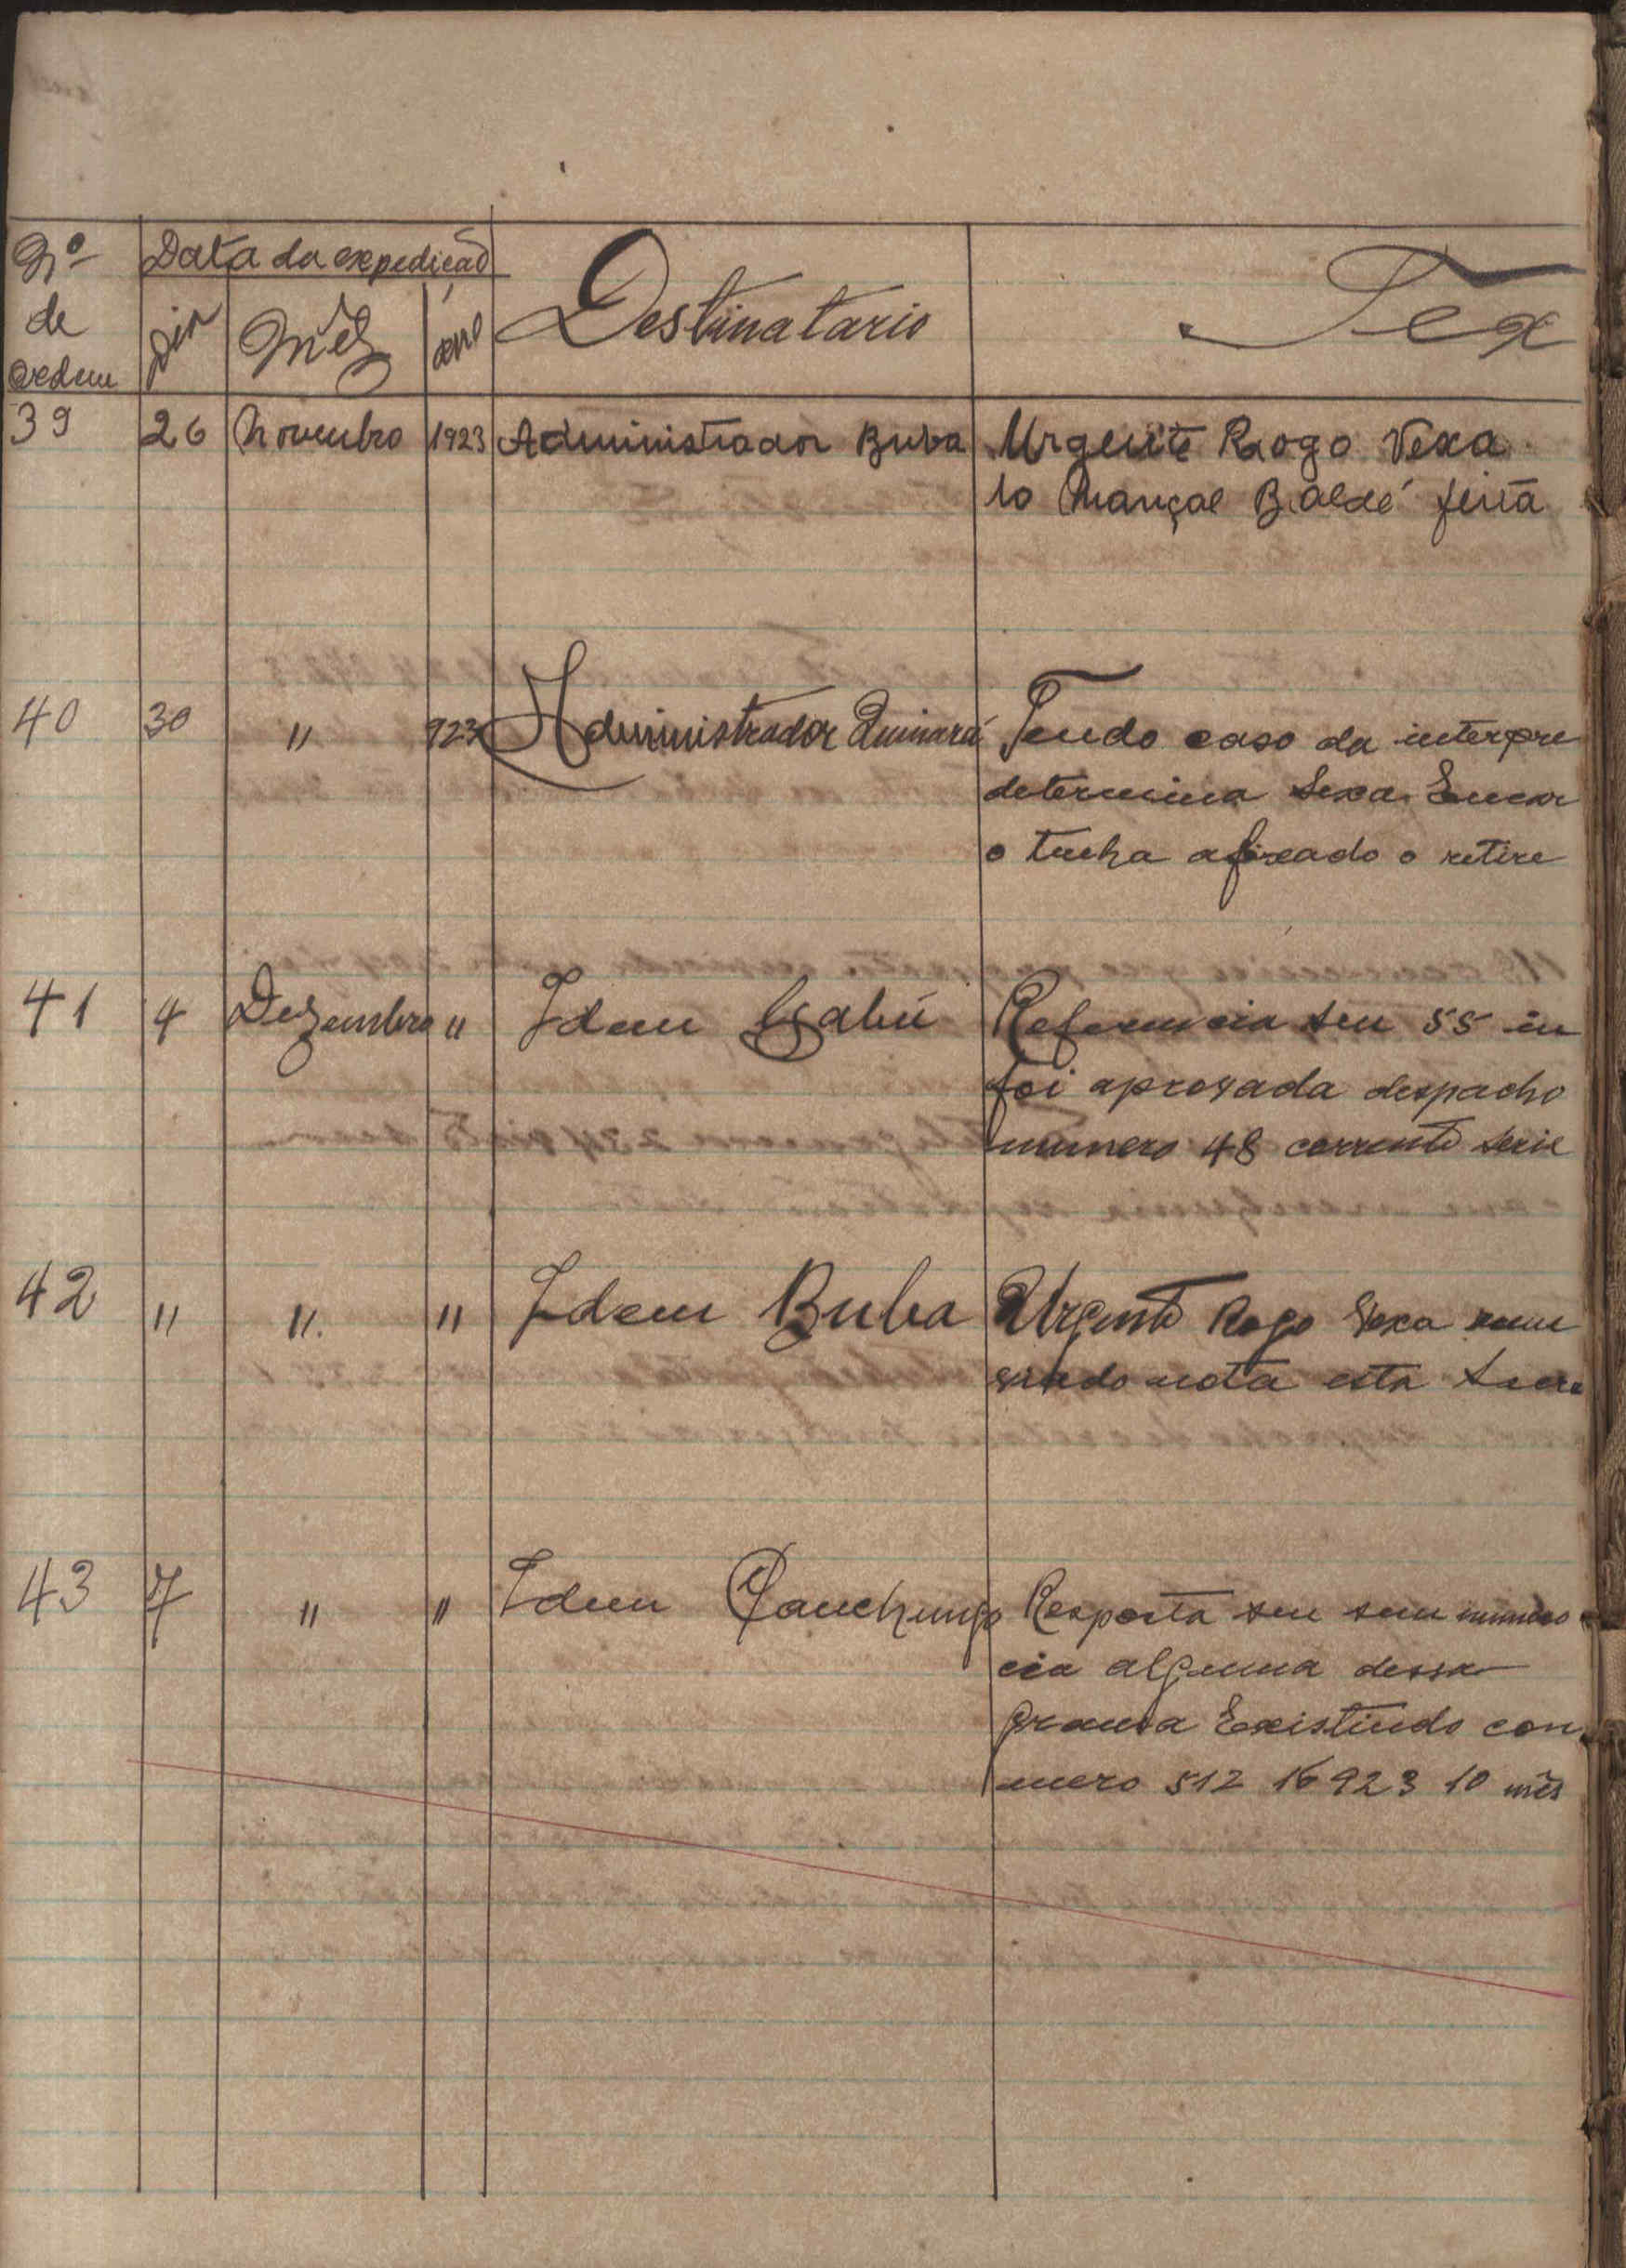 Nº de ordem
Data da expedição
Dia Mês ano
Destinatario
Tex
39 26 Novembro 1923 Administrador Buba Urgente Rogo Vexa
lo Mançal Baldé feita
40 30 " 923 Administrador Quinará Tendo caso da interpre
determina Sexa Encar
o tenha afixado o retire
41 4 Dezembro " Idem Gabú Referencia seu 55 in
foi aprovada despacho
numero 48 corrente serie
42 " " " Idem Buba Urgente Rogo Vexa
nota esta Secre
43 7 " " Idem Canchungo Resposta seu sem numero
cia alguma dessa
Existindo con
mero 512 16 923 10 mês